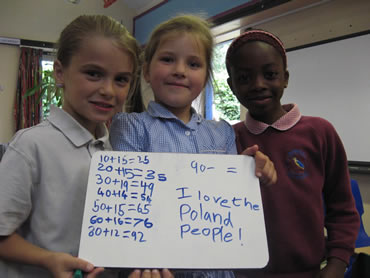 10+15=25
20+15=35
30+19=49
40+14=54
50+15=65
60+16=76
80+12=92
90- =
I love the
Poland
People!